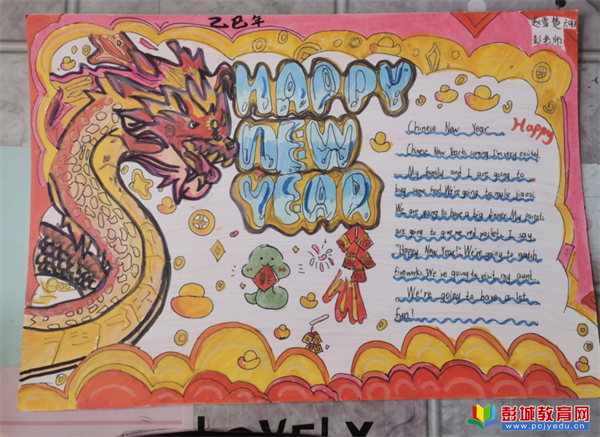 乙巳年
赵雪楚 六(4)
彭老师
HAPPY
NEW
YEAR
Happy
Chinese New Year
Chinese New Year's coming. I'm very excited.
My family and I are going to
buy some food. We're going to make jiaozi.
We are going to have a big dinner. My parents
are going to give me red packet. I say
"Happy New Year!" We're going to watch
fireworks. We're going to visit my aunt.
We're going to have a lot
fun!
LOVELY
彭城教育网
www.pcjyedu.cn